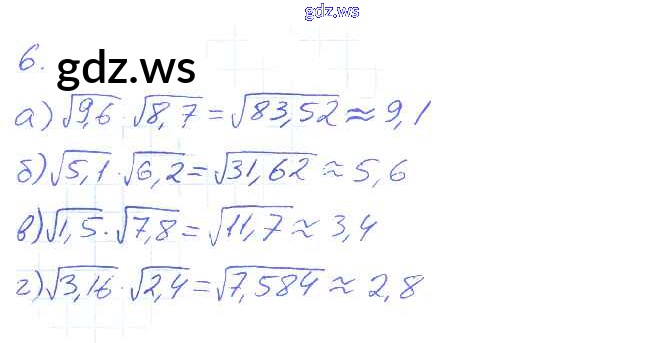 gdz.ws
6.
gdz.ws
а) √9,6 · √8,7 = √83,52 ≈ 9,1
б) √5,1 · √6,2 = √31,62 ≈ 5,6
в) √1,5 · √7,8 = √11,7 ≈ 3,4
г) √3,16 · √2,4 = √7,584 ≈ 2,8